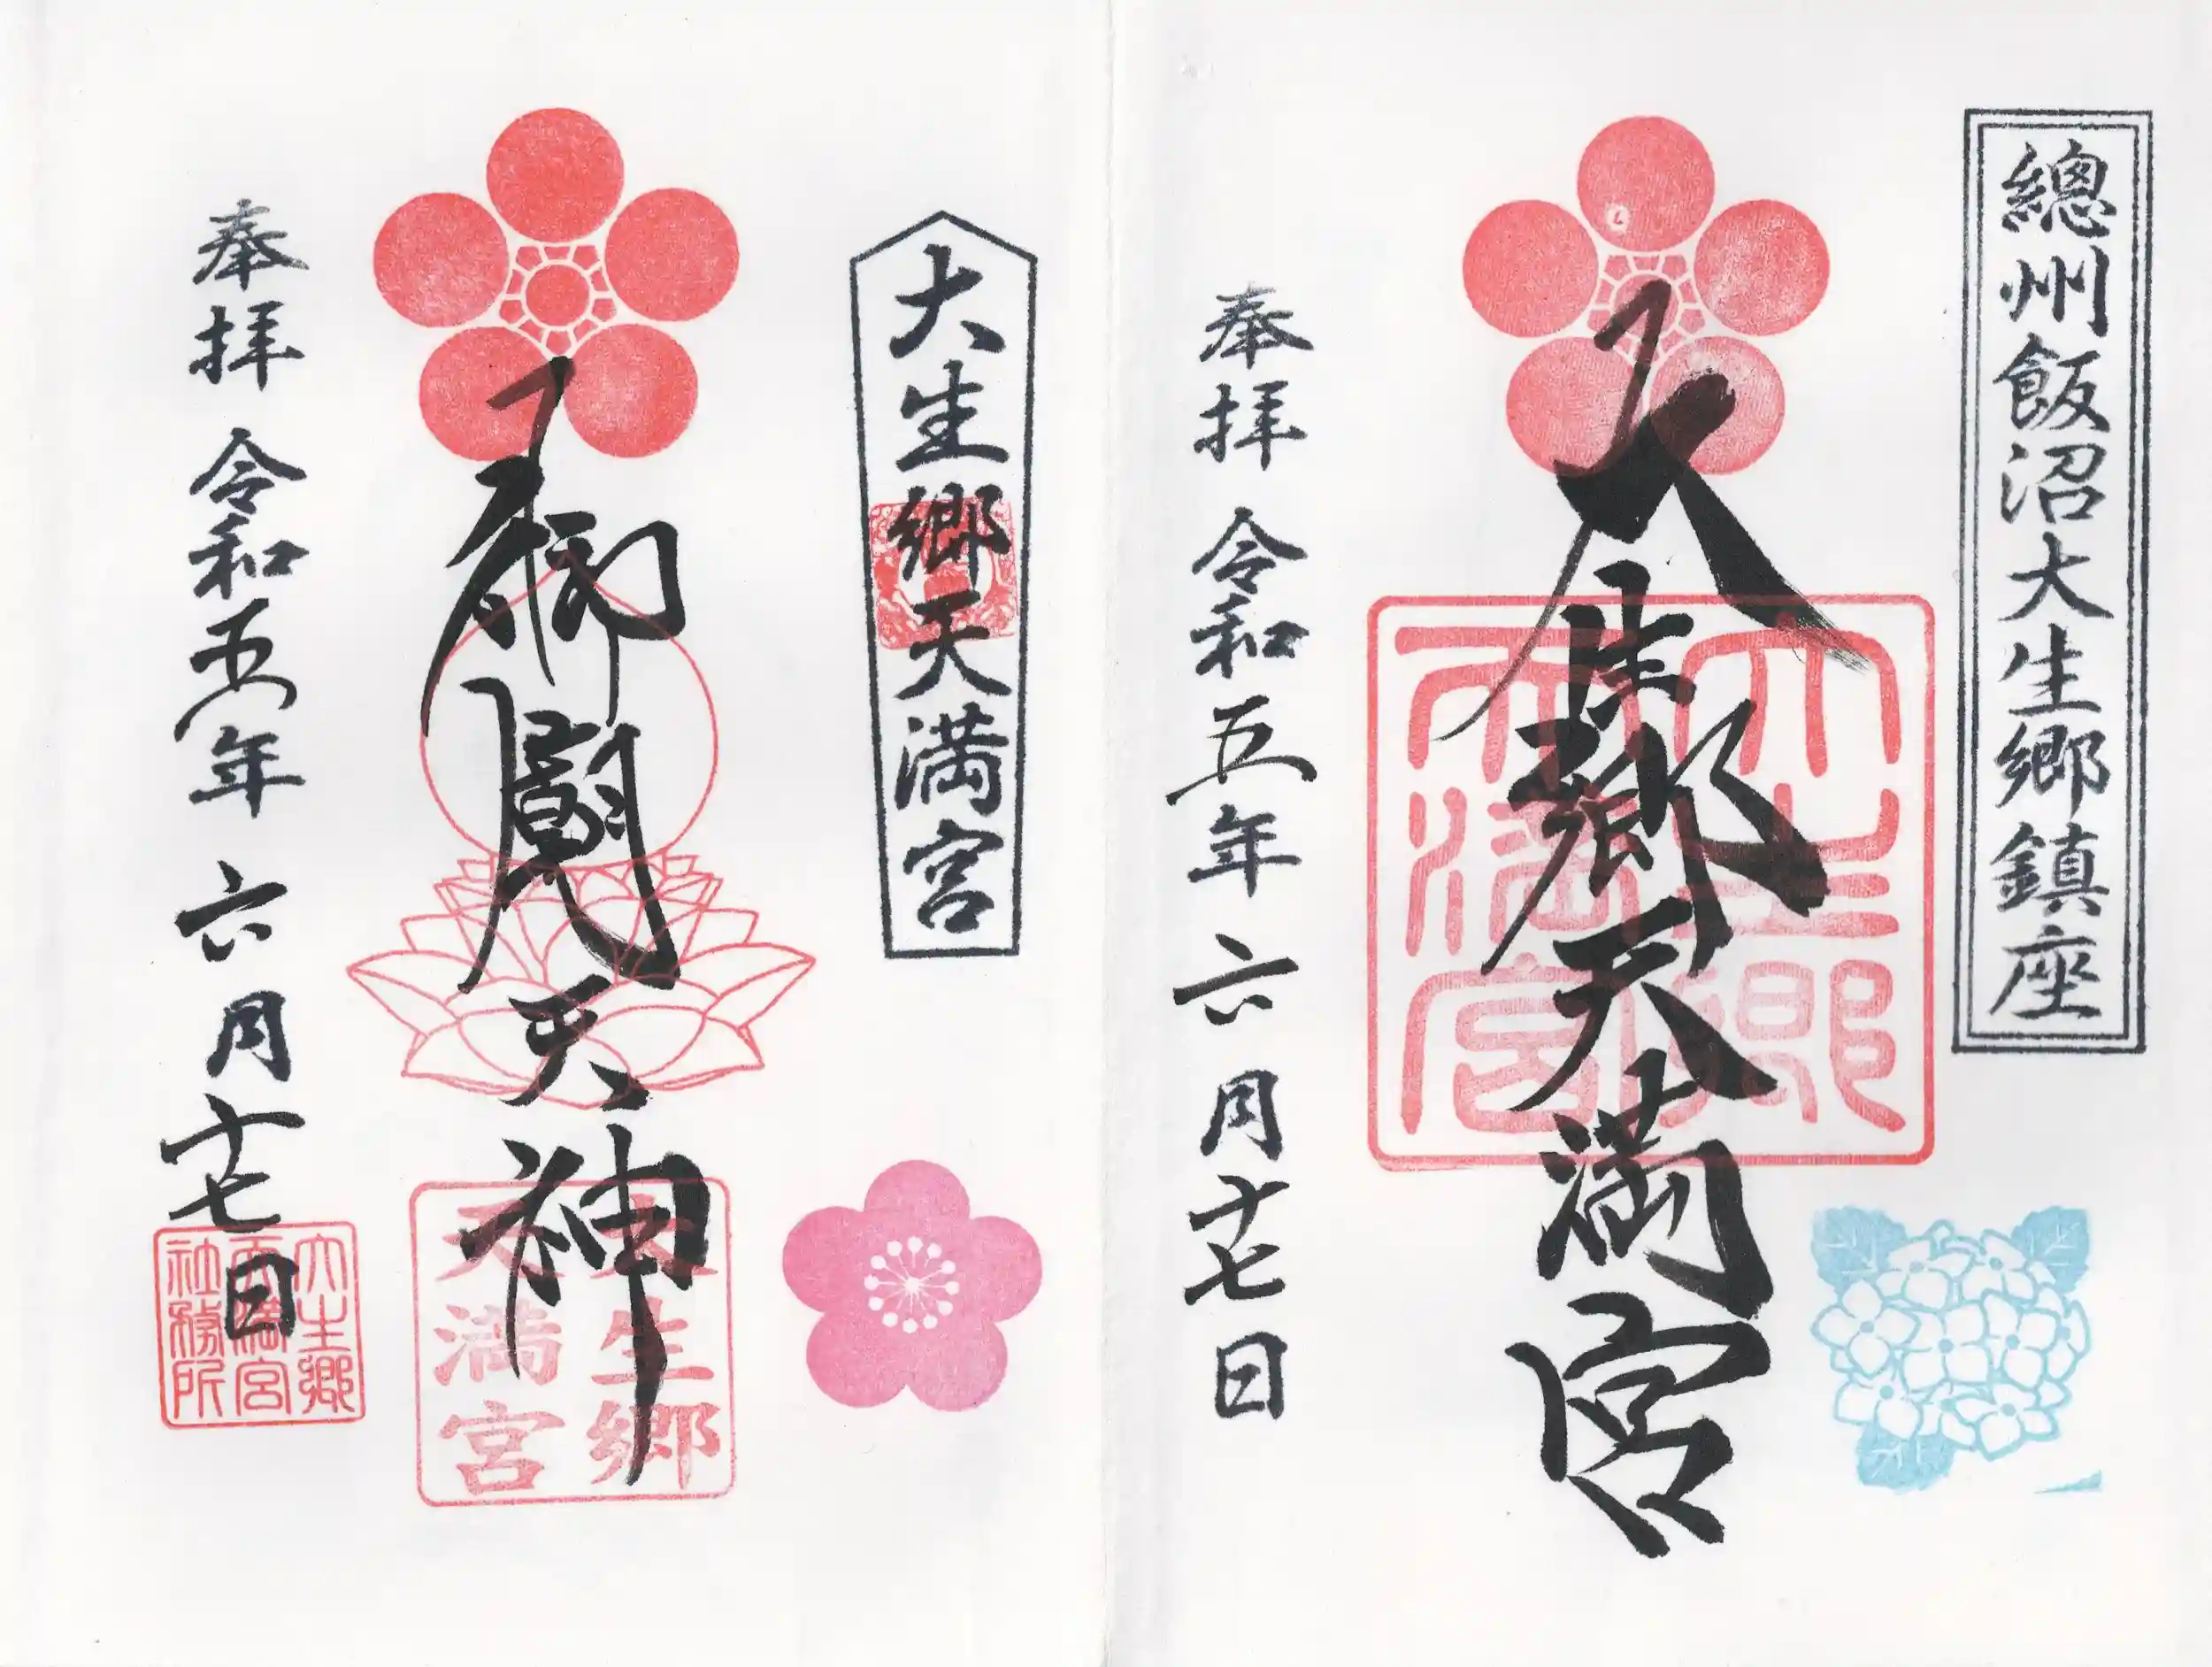 總州飯沼大生郷鎮座
大生郷天満宮
大生郷
天満宮
奉拝 令和五年 六月十七日
大生郷天満宮
御廟天神
大生郷
天満宮
奉拝 令和五年 六月十七日
大生郷
天満宮
社務所